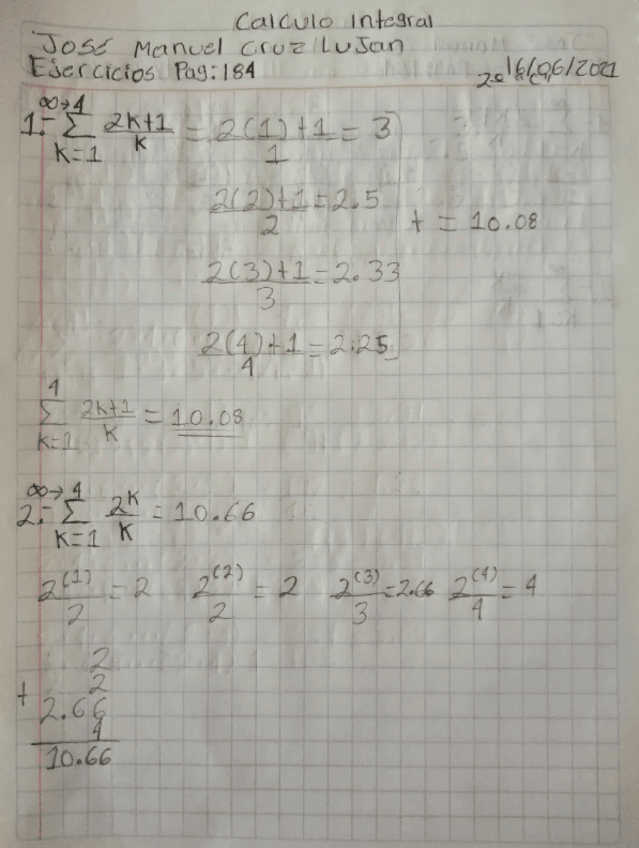 Calculo Integral
José Manuel Cruz Lujan
Ejercicios Pag: 184
16/06/2021
∞→4
1.- Σ 2k+1/k = 2(1)+1/1 = 3
k=1
2(2)+1/2 = 2.5
t = 10.08
2(3)+1/3 = 2.33
2(4)+1/4 = 2.25
4
Σ 2k+1/k = 10.08
k=1
∞→4
2.- Σ 2^k/k = 10.66
k=1
2^(1)/2 = 2 2^(2)/2 = 2 2^(3)/3 = 2.66 2^(4)/4 = 4
2
2
+ 2.66
4
10.66